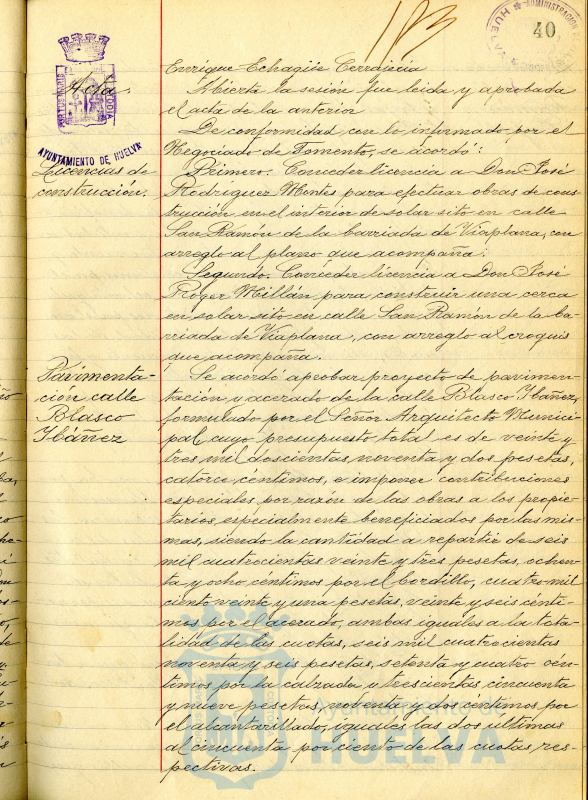 40
Enrique Echagüe Cerrajería
Acta.
Abierta la sesión fue leida y aprobada
el acta de la anterior
De conformidad con lo informado por el
AYUNTAMIENTO DE HUELVA
Negociado de Fomento, se acordó:
Licencias de
construcción.
Primero. Conceder licencia a Don José
Rodríguez Montes para efectuar obras de cons-
trucción en el interior de solar sito en calle
San Ramón de la barriada de Viaplana, con
arreglo al plano que acompaña;
Segundo. Conceder licencia a Don José
Roger Millán para construir una cerca
en solar sito en calle San Ramón de la ba-
rriada de Viaplana, con arreglo al croquis
que acompaña.
Pavimenta-
cion calle
Blasco
Ybáñez
Se acordó aprobar proyecto de pavimen-
tación y acerado de la calle Blasco Ybáñez,
formulado por el Señor Arquitecto Munici-
pal, cuyo presupuesto total es de veinte y
tres mil doscientas noventa y dos pesetas,
catorce céntimos, e imponer contribuciones
especiales por razón de las obras a los propie-
tarios especialmente beneficiados por las mis-
mas, siendo la cantidad a repartir de seis
mil cuatrocientas veinte y tres pesetas, ochen-
ta y ocho céntimos por el bordillo, cuatro mil
ciento veinte y una pesetas, veinte y seis cénti-
mos por el acerado, ambas iguales a la tota-
lidad de las cuotas, seis mil cuatrocientas
noventa y seis pesetas, setenta y cuatro cén-
timos por la calzada y trescientas cincuenta
y nueve pesetas, noventa y dos céntimos por
el alcantarillado, iguales las dos últimas
al cincuenta por ciento de las cuotas res-
pectivas.
Ayuntamiento
HUELVA